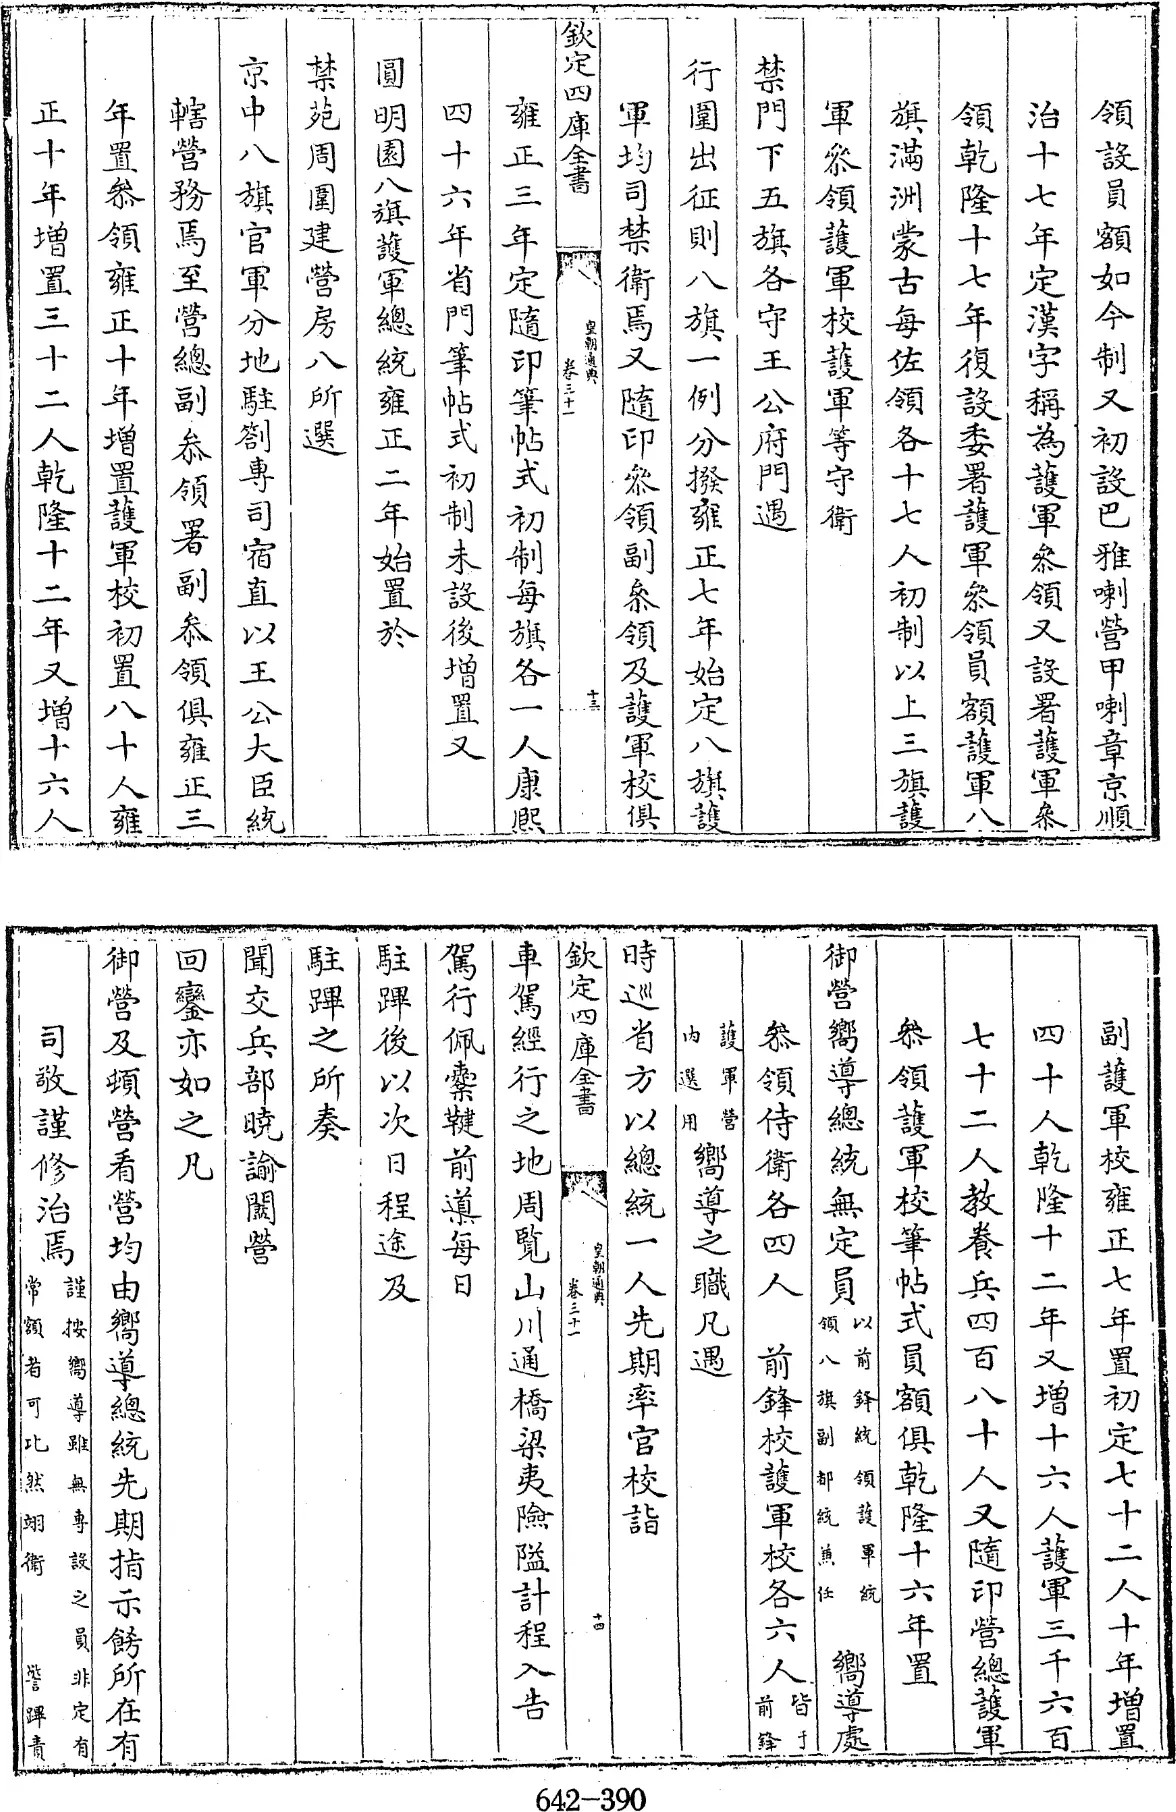 領設員額如今制又初設巴雅喇營甲喇章京順
治十七年定漢字稱為護軍叅領又設署護軍叅
領乾隆十七年復設委署護軍叅領員額護軍八
旗滿洲蒙古每佐領各十七人初制以上三旗護
軍叅領護軍校護軍等守衛
禁門下五旗各守王公府門遇
行圍出征則八旗一例分撥雍正七年始定八旗護
軍均司禁衛焉又隨印叅領副叅領及護軍校俱
欽定四庫全書
皇朝通典
卷三十一
十三
雍正三年定隨印筆帖式初制每旗各一人康熙
四十六年省門筆帖式初制未設後增置又
圓明園八旗護軍總統雍正二年始置於
禁苑周圍建營房八所選
京中八旗官軍分地駐劄專司宿直以王公大臣統
轄營務焉至營總副叅領署副叅領俱雍正三
年置叅領雍正十年增置護軍校初置八十人雍
正十年增置三十二人乾隆十二年又增十六人
副護軍校雍正七年置初定七十二人十年增置
四十人乾隆十二年又增十六人護軍三千六百
七十二人教養兵四百八十人又隨印營總護軍
叅領護軍校筆帖式員額俱乾隆十六年置
御營嚮導總統無定員以前鋒統領護軍統領八旗副都統兼任 嚮導處
叅領侍衛各四人 前鋒校護軍校各六人皆于前鋒
護軍營內選用嚮導之職凡遇
時巡省方以總統一人先期率官校詣
欽定四庫全書
皇朝通典
卷三十一
十四
車駕經行之地周覽山川通橋梁夷險隘計程入告
駕行佩櫜鞬前導每日
駐蹕後以次日程途及
駐蹕之所奏
聞交兵部曉諭閽營
回鑾亦如之凡
御營及頓營看營均由嚮導總統先期指示餝所在有
司敬謹修治焉謹按嚮導雖無專設之員非定有常額者可比然翊衛 警蹕責
642-390